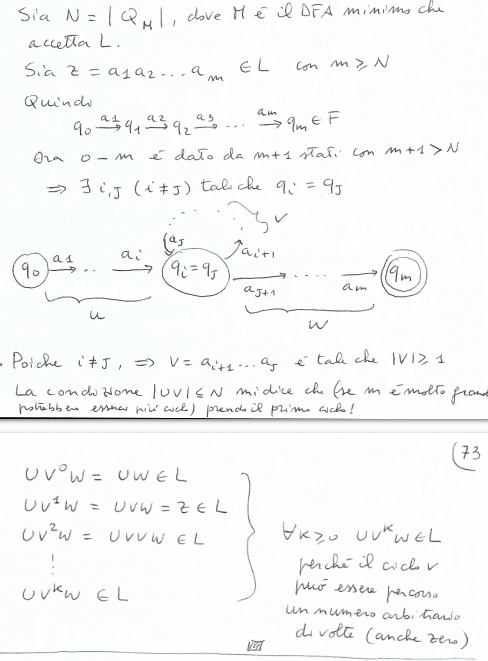 Sia N = |Q_M|, dove M è il DFA minimo che
accetta L.
Sia z = a1 a2 ... a_m ∈ L con m ≥ N
Quindi
q0 -a1-> q1 -a2-> q2 -a3-> ... -am-> qm ∈ F
Ora 0-m è dato da m+1 stati con m+1 > N
⇒ ∃ i,J (i ≠ J) tali che qi = qJ
v
q0 a1 .. ai qi = qJ aJ ai+1 aJ+1 .... am qm
u
w
. Poiché i ≠ J, ⇒ V = a_i+1 ... aJ è tale che |V| ≥ 1
La condizione |UV| ≤ N mi dice che (se m è molto grande
potrebbero esserci più cicli) prendo il primo ciclo!
(73
UV⁰W = UW ∈ L
UV¹W = UVW = Z ∈ L
UV²W = UVVW ∈ L
⋮
UVᵏW ∈ L
∀K ≥ 0 UVᵏW ∈ L
perché il ciclo v
può essere percorso
un numero arbitrario
di volte (anche zero)